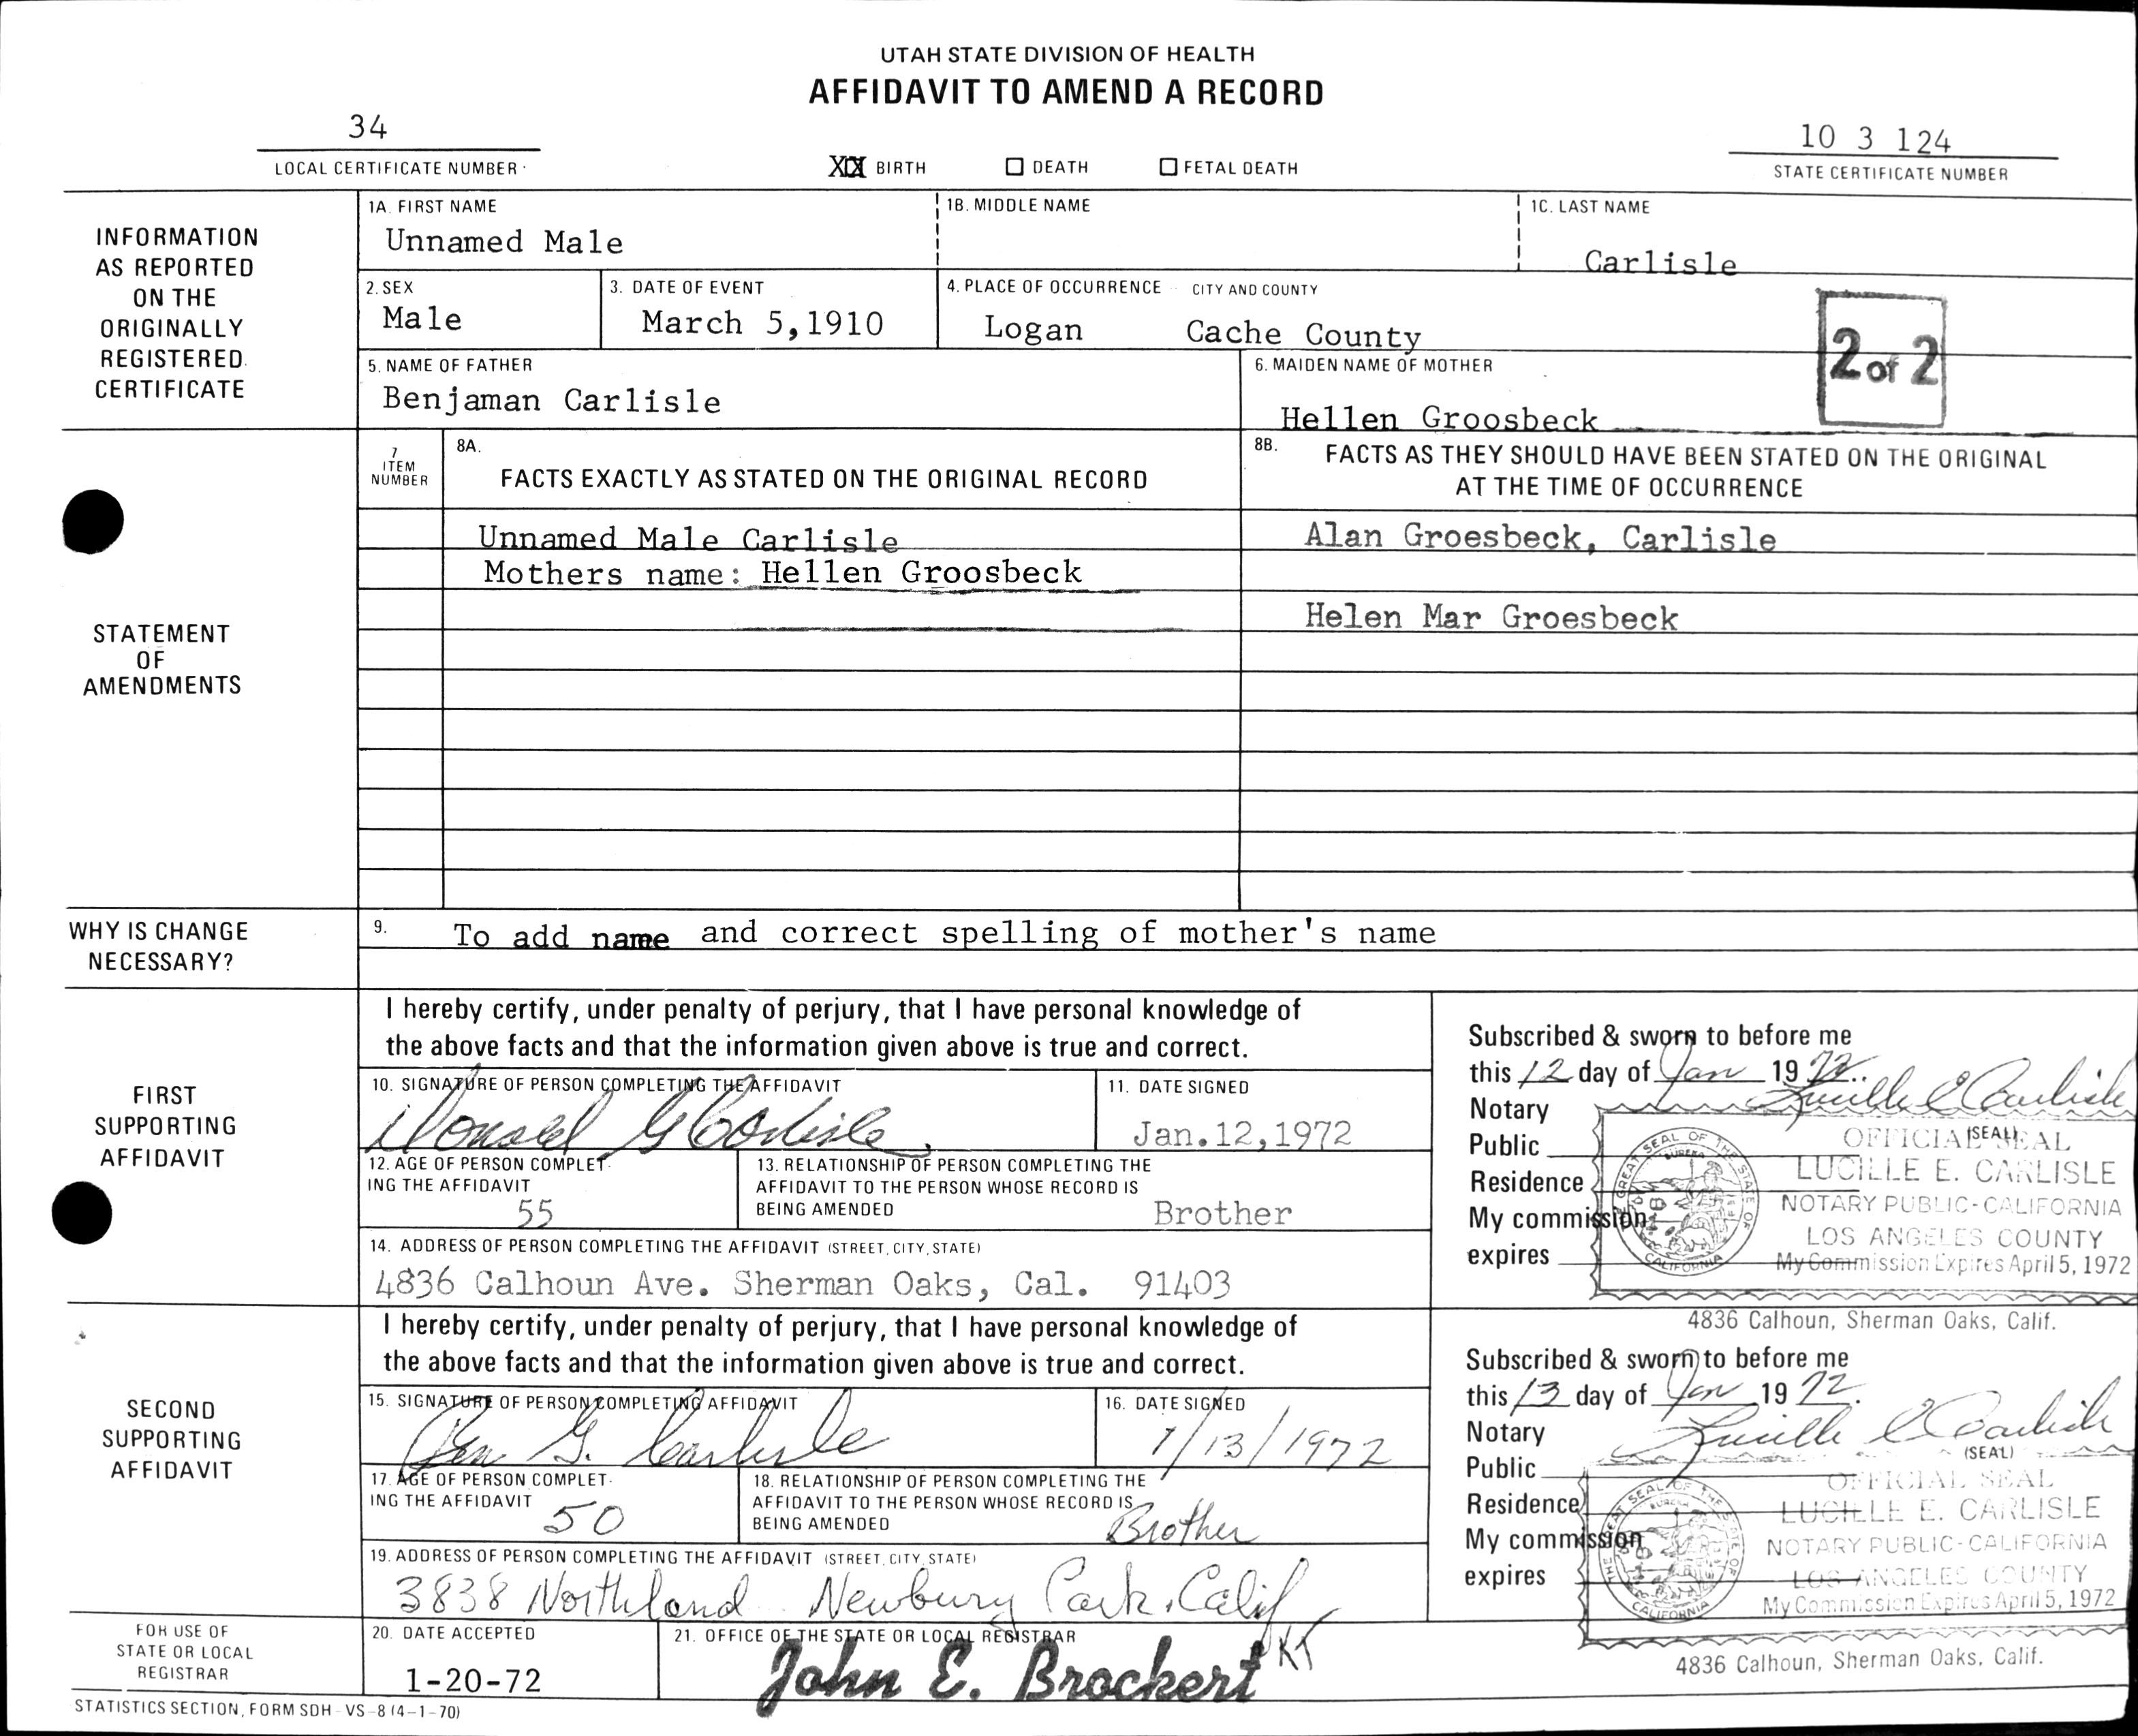 UTAH STATE DIVISION OF HEALTH
AFFIDAVIT TO AMEND A RECORD
34
LOCAL CERTIFICATE NUMBER
XX BIRTH
DEATH
FETAL DEATH
10 3 124
STATE CERTIFICATE NUMBER
INFORMATION
AS REPORTED
ON THE
ORIGINALLY
REGISTERED
CERTIFICATE
1A. FIRST NAME
Unnamed Male
1B. MIDDLE NAME
1C. LAST NAME
Carlisle
2. SEX
Male
3. DATE OF EVENT
March 5,1910
4. PLACE OF OCCURRENCE CITY AND COUNTY
Logan Cache County
2 of 2
5. NAME OF FATHER
Benjaman Carlisle
6. MAIDEN NAME OF MOTHER
Hellen Groosbeck
STATEMENT
OF
AMENDMENTS
7
ITEM
NUMBER
8A.
FACTS EXACTLY AS STATED ON THE ORIGINAL RECORD
8B.
FACTS AS THEY SHOULD HAVE BEEN STATED ON THE ORIGINAL
AT THE TIME OF OCCURRENCE
Unnamed Male Carlisle
Alan Groesbeck, Carlisle
Mothers name: Hellen Groosbeck
Helen Mar Groesbeck
WHY IS CHANGE
NECESSARY?
9.
To add name and correct spelling of mother's name
FIRST
SUPPORTING
AFFIDAVIT
I hereby certify, under penalty of perjury, that I have personal knowledge of
the above facts and that the information given above is true and correct.
10. SIGNATURE OF PERSON COMPLETING THE AFFIDAVIT
Donald G Carlisle
11. DATE SIGNED
Jan.12,1972
12. AGE OF PERSON COMPLET-
ING THE AFFIDAVIT
55
13. RELATIONSHIP OF PERSON COMPLETING THE
AFFIDAVIT TO THE PERSON WHOSE RECORD IS
BEING AMENDED
Brother
14. ADDRESS OF PERSON COMPLETING THE AFFIDAVIT (STREET, CITY, STATE)
4836 Calhoun Ave. Sherman Oaks, Cal. 91403
Subscribed & sworn to before me
this 12 day of Jan 1972.
Lucille E Carlisle
Notary
Public
(SEAL)
Residence
My commission
expires
GREAT SEAL OF THE STATE OF CALIFORNIA
EUREKA
OFFICIAL SEAL
LUCILLE E. CARLISLE
NOTARY PUBLIC-CALIFORNIA
LOS ANGELES COUNTY
My Commission Expires April 5, 1972
4836 Calhoun, Sherman Oaks, Calif.
SECOND
SUPPORTING
AFFIDAVIT
I hereby certify, under penalty of perjury, that I have personal knowledge of
the above facts and that the information given above is true and correct.
15. SIGNATURE OF PERSON COMPLETING AFFIDAVIT
Ben G. Carlisle
16. DATE SIGNED
1/13/1972
17. AGE OF PERSON COMPLET-
ING THE AFFIDAVIT
50
18. RELATIONSHIP OF PERSON COMPLETING THE
AFFIDAVIT TO THE PERSON WHOSE RECORD IS
BEING AMENDED
Brother
19. ADDRESS OF PERSON COMPLETING THE AFFIDAVIT (STREET, CITY, STATE)
3838 Northland Newbury Park, Calif
Subscribed & sworn to before me
this 13 day of Jan 1972.
Lucille E Carlisle
Notary
Public
(SEAL)
Residence
My commission
expires
GREAT SEAL OF THE STATE OF CALIFORNIA
EUREKA
OFFICIAL SEAL
LUCILLE E. CARLISLE
NOTARY PUBLIC-CALIFORNIA
LOS ANGELES COUNTY
My Commission Expires April 5, 1972
4836 Calhoun, Sherman Oaks, Calif.
FOR USE OF
STATE OR LOCAL
REGISTRAR
20. DATE ACCEPTED
1-20-72
21. OFFICE OF THE STATE OR LOCAL REGISTRAR
John E. Brockert KT
STATISTICS SECTION, FORM SDH-VS-8 (4-1-70)